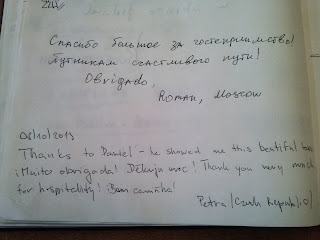 Спасибо большое за гостеприимство!
Путникам счастливого пути!
Obrigado,
Roman, Moscow
08/10/2013
Thanks to Daniel - he showed me this beatiful
¡Muito obrigada! Děkuju moc! Thank you very much
for hospitality! Bom caminha!
Petra /Czech Republic :o)